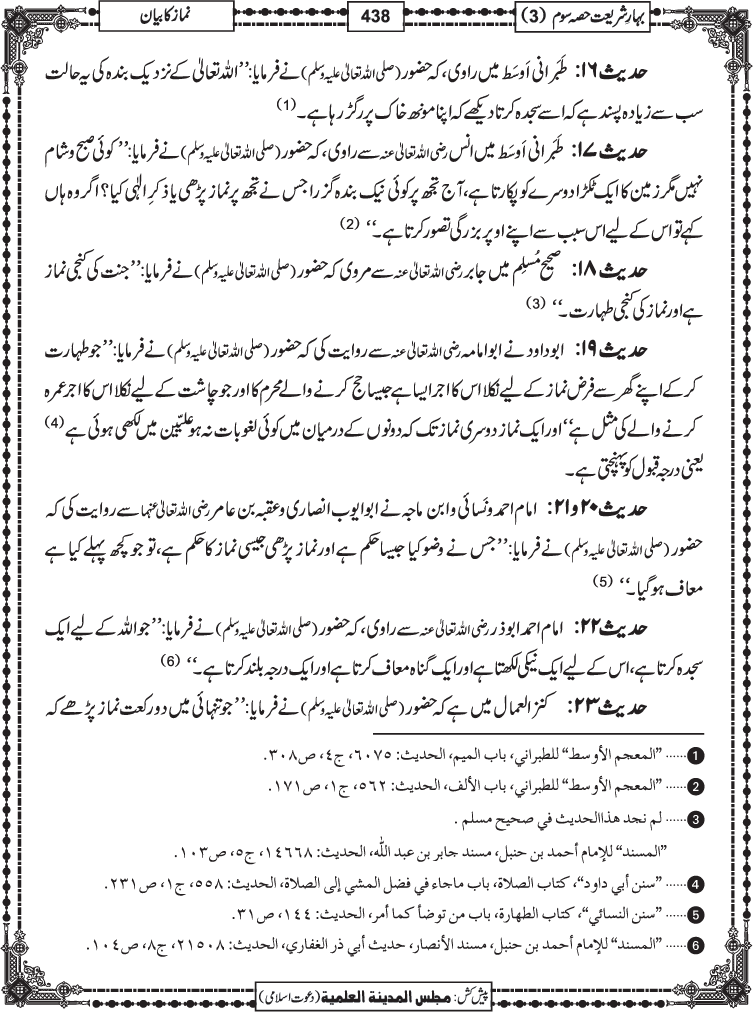 بہار شریعت حصہ سوم (3)
438
نماز کا بیان
حدیث ۱۶: طَبَرانی اَوسَط میں راوی، کہ حضور (صلی اللہ تعالیٰ علیہ وسلم) نے فرمایا: ’’اللہ تعالیٰ کے نزدیک بندہ کی یہ حالت
سب سے زیادہ پسند ہے کہ اسے سجدہ کرتا دیکھے کہ اپنا مونھ خاک پر رگڑ رہا ہے۔ (1)
حدیث ۱۷: طَبَرانی اَوسَط میں انس رضی اللہ تعالیٰ عنہ سے راوی، کہ حضور (صلی اللہ تعالیٰ علیہ وسلم) نے فرمایا: ’’کوئی صبح و شام
نہیں مگر زمین کا ایک ٹکڑا دوسرے کو پکارتا ہے، آج تجھ پر کوئی نیک بندہ گزرا جس نے تجھ پر نماز پڑھی یا ذکرِ الٰہی کیا؟ اگر وہ ہاں
کہے تو اس کے لیے اس سبب سے اپنے اوپر بزرگی تصور کرتا ہے۔‘‘ (2)
حدیث ۱۸: صحیح مُسلِم میں جابر رضی اللہ تعالیٰ عنہ سے مروی کہ حضور (صلی اللہ تعالیٰ علیہ وسلم) نے فرمایا: ’’جنت کی کنجی نماز
ہے اور نماز کی کنجی طہارت۔‘‘ (3)
حدیث ۱۹: ابوداود نے ابوامامہ رضی اللہ تعالیٰ عنہ سے روایت کی کہ حضور (صلی اللہ تعالیٰ علیہ وسلم) نے فرمایا: ’’جو طہارت
کر کے اپنے گھر سے فرض نماز کے لیے نکلا اس کا اجر ایسا ہے جیسا حج کرنے والے محرم کا اور جو چاشت کے لیے نکلا اس کا اجر عمرہ
کرنے والے کی مثل ہے‘‘ اور ایک نماز دوسری نماز تک کہ دونوں کے درمیان میں کوئی لغو بات نہ ہو علّیین میں لکھی ہوئی ہے (4)
یعنی درجہ قبول کو پہنچتی ہے۔
حدیث ۲۰ و ۲۱: امام احمد و نَسائی و ابن ماجہ نے ابوایوب انصاری و عقبہ بن عامر رضی اللہ تعالیٰ عنہما سے روایت کی کہ
حضور (صلی اللہ تعالیٰ علیہ وسلم) نے فرمایا: ’’جس نے وضو کیا جیسا حکم ہے اور نماز پڑھی جیسی نماز کا حکم ہے، تو جو کچھ پہلے کیا ہے
معاف ہوگیا۔‘‘ (5)
حدیث ۲۲: امام احمد ابوذر رضی اللہ تعالیٰ عنہ سے راوی، کہ حضور (صلی اللہ تعالیٰ علیہ وسلم) نے فرمایا: ’’جو اللہ کے لیے ایک
سجدہ کرتا ہے، اس کے لیے ایک نیکی لکھتا ہے اور ایک گناہ معاف کرتا ہے اور ایک درجہ بلند کرتا ہے۔‘‘ (6)
حدیث ۲۳: کنز العمال میں ہے کہ حضور (صلی اللہ تعالیٰ علیہ وسلم) نے فرمایا: ’’جو تنہائی میں دو رکعت نماز پڑھے کہ
1 ...... ”المعجم الأوسط“ للطبراني، باب الميم، الحديث: ٦٠٧٥، ج٤، ص٣٠٨.
2 ...... ”المعجم الأوسط“ للطبراني، باب الألف، الحديث: ٥٦٢، ج١، ص١٧١.
3 ...... لم نجد هذا الحديث في صحيح مسلم .
”المسند“ للإمام أحمد بن حنبل، مسند جابر بن عبد اللّٰه، الحديث: ١٤٦٦٨، ج٥، ص١٠٣.
4 ...... ”سنن أبي داود“، كتاب الصلاة، باب ماجاء في فضل المشي إلى الصلاة، الحديث: ٥٥٨، ج١، ص٢٣١.
5 ...... ”سنن النسائي“، كتاب الطهارة، باب من توضأ كما أمر، الحديث: ١٤٤، ص٣١.
6 ...... ”المسند“ للإمام أحمد بن حنبل، مسند الأنصار، حديث أبي ذر الغفاري، الحديث: ٢١٥٠٨، ج٨، ص١٠٤.
پیش کش: مجلس المدينة العلمية (دعوت اسلامی)